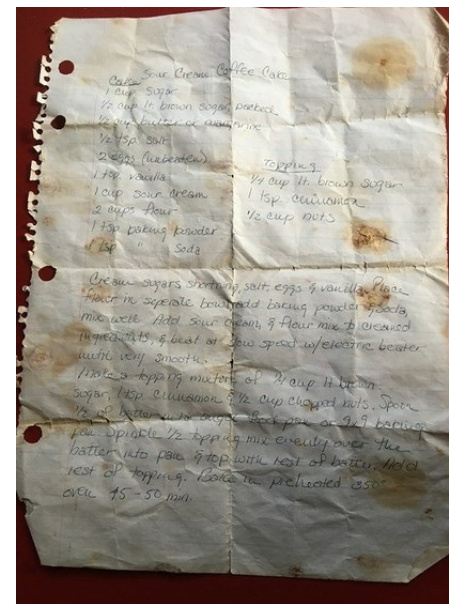 Sour Cream Coffee Cake
Cake
1 cup sugar
1/2 cup lt. brown sugar, packed
1/2 cup butter or margarine
1/2 tsp salt
2 eggs (unbeaten)
1 tsp vanilla
1 cup sour cream
2 cups flour
1 tsp baking powder
1 tsp " Soda
Topping
1/4 cup lt. brown sugar
1 tsp. cinnamon
1/2 cup nuts
Cream sugars shortning, salt, eggs & vanilla. Place
flour in seperate bowl, add baking powder & soda,
mix well. Add sour cream, & flour mix to creamed
ingredients, & beat at slow speed w/electric beater
until very smooth.
Make a topping mixture of cup lt brown
sugar, 1 tsp cinnamon & 1/2 cup chopped nuts. Spoon
1/2 of batter into pan or 9x9 baking
pan. Sprinkle 1/2 topping mix evenly over the
batter into pan & top with rest of batter. Add
rest of topping. Bake in preheated 350°
oven 45-50 min.